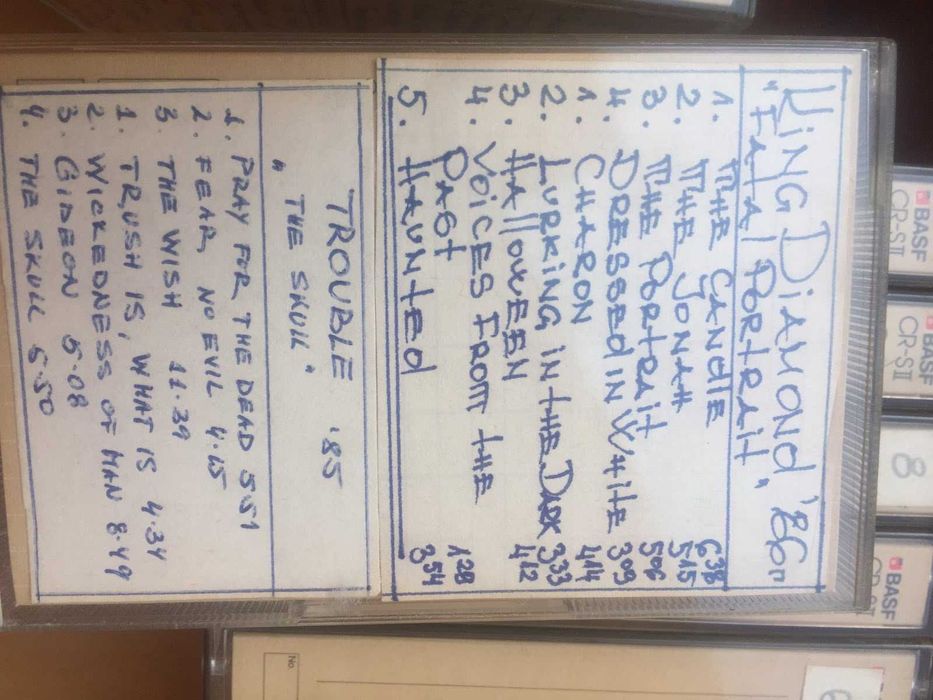 KING DIAMOND '86"
"FATAL PORTRAIT"
1. THE CANDLE 6 38
2. THE JONAH 5 15
3. THE PORTRAIT 5 06
4. DRESSED IN WHITE 3 09
1. CHARON 4 14
2. LURKING IN THE DARK 3 33
3. HALLOWEEN 4 12
4. VOICES FROM THE
PAST 1 28
5. HAUNTED 3 54
"TROUBLE '85
" THE SKULL "
1. PRAY FOR THE DEAD 5.51
2. FEAR NO EVIL 4.15
3. THE WISH 11.39
1. TRUSH IS, WHAT IS 4.34
2. WICKEDNESS OF MAN 8.49
3. GIDEON 5.08
4. THE SKULL 5.50
BASF
CR-SII
BASF
CR-SII
8
BASF
CR-SII
No.